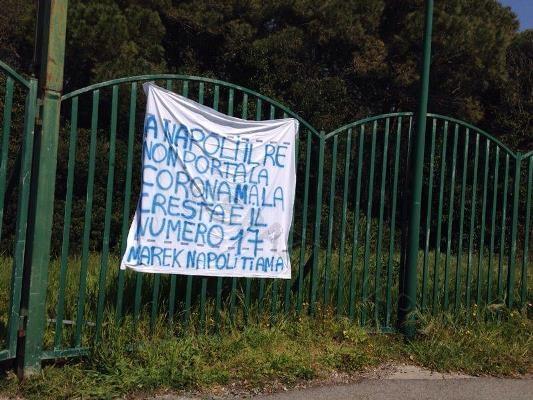 A NAPOLI IL RE
NON PORTA LA
CORONA MA LA
CRESTA E IL
NUMERO 17
MAREK NAPOLI TI AMA